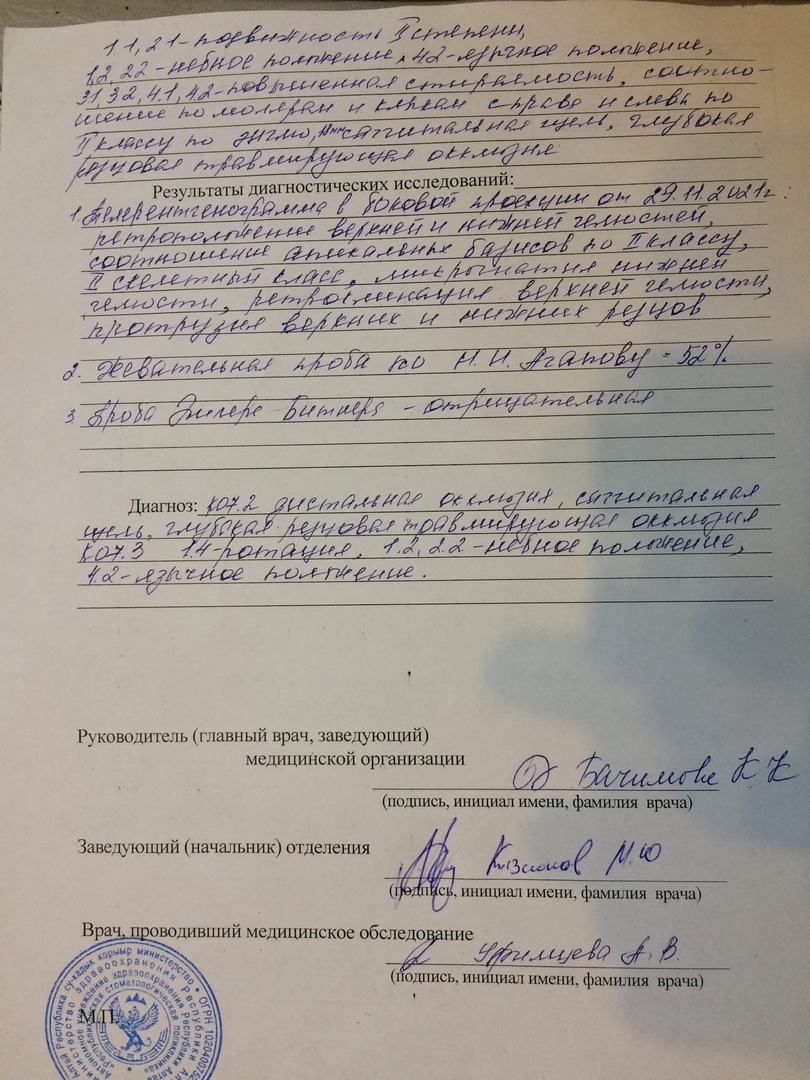 1.1, 2.1 - подвижность II степени,
1.2, 2.2 - небное положение, 4.2 - язычное положение,
3.1, 3.2, 4.1, 4.2 - повышенная стираемость, соотно-
шение по молярам и клыкам справа и слева по
II классу по Энглю, сагиттальная щель, глубокая
резцовая травмирующая окклюзия
Результаты диагностических исследований:
1. Телерентгенограмма в боковой проекции от 29.11.2021г.:
ретроположение верхней и нижней челюстей,
соотношение апикальных базисов по II классу,
II скелетный класс, микрогнатия нижней
челюсти, ретроинклинация верхней челюсти,
протрузия верхних и нижних резцов
2. Жевательная проба по И.И. Агапову = 52%
3. Проба Эшлера Битнера - отрицательная
Диагноз: К07.2 дистальная окклюзия, сагиттальная
щель, глубокая резцовая травмирующая окклюзия
К07.3 1.4 - ротация, 1.2, 2.2 - небное положение,
4.2 - язычное положение.
Руководитель (главный врач, заведующий)
медицинской организации
К К
(подпись, инициал имени, фамилия врача)
Заведующий (начальник) отделения
М.Ю
(подпись, инициал имени, фамилия врача)
Врач, проводивший медицинское обследование
А. В.
(подпись, инициал имени, фамилия врача)
М.П.
Алтай Республика су-кадык корыыр министерство * ОГРН
Министерство здравоохранения Республики
учреждение здравоохранения Республики
стоматологическая поликлиника